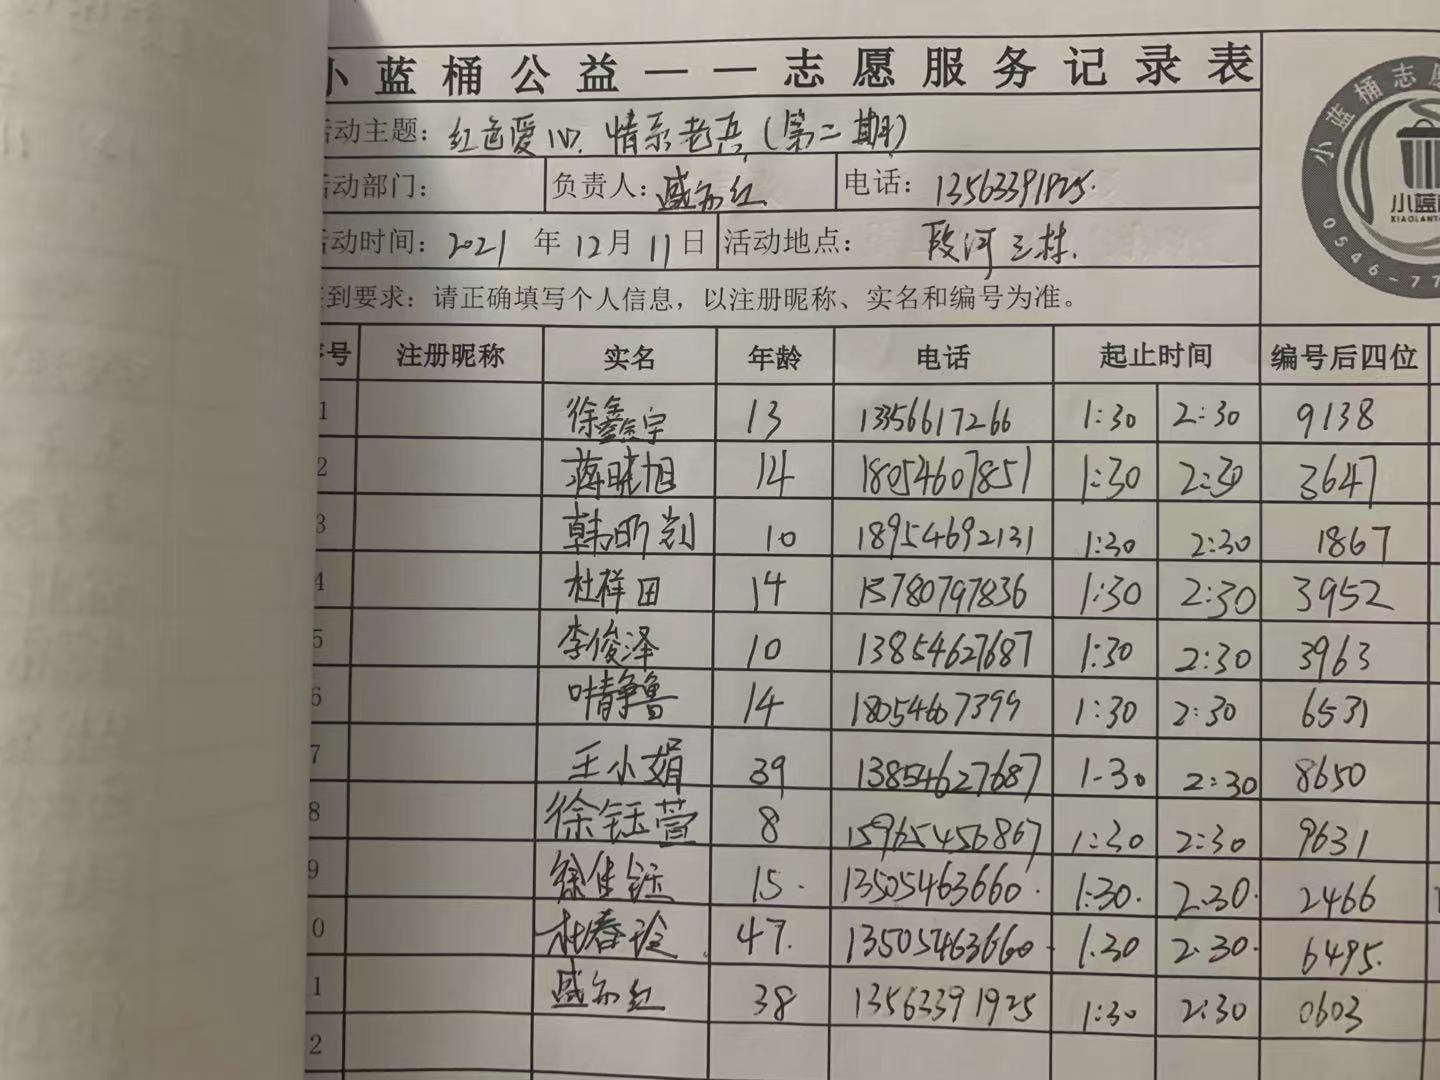 小蓝桶公益——志愿服务记录表
活动主题：红色爱心 情系老兵（第二期）
活动部门： 负责人： 电话：13563391925.
活动时间：2021年12月11日 活动地点：段河三村.
签到要求：请正确填写个人信息，以注册昵称、实名和编号为准。
序号 注册昵称 实名 年龄 电话 起止时间 编号后四位
1 徐鑫宇 13 13356617266 1:30 2:30 9138
2 蒋晓旭 14 18054607851 1:30 2:30 3647
3 韩昕 10 18954692131 1:30 2:30 1867
4 杜祥田 14 15780797836 1:30 2:30 3952
5 李俊泽 10 13854627687 1:30 2:30 3963
6 叶静鲁 14 18054607399 1:30 2:30 6531
7 王小娟 39 13854627687 1-30 2:30 8650
8 徐钰萱 8 15965456867 1:30 2:30 9631
9 徐佳钰 15. 13505463660. 1:30. 2.30. 2466
0 杜春玲 47. 13505463660. 1.30 2.30. 6495.
1 38 13563391925 1:30 2:30 0603
2
小蓝桶志愿
小蓝
XIAOLANT
0546-77